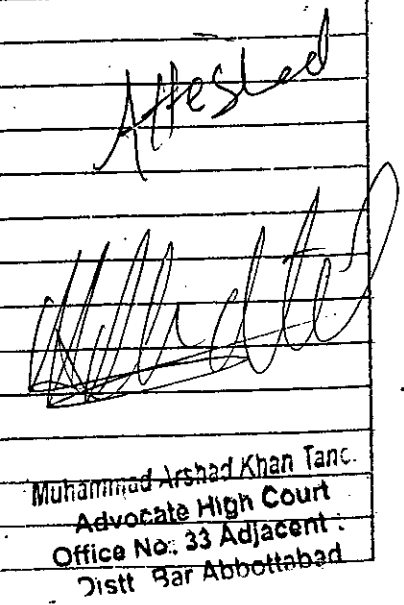 Attested
Muhammad Arshad Khan Tanc.
Advocate High Court
Office No: 33 Adjacent :
Distt Bar Abbottabad